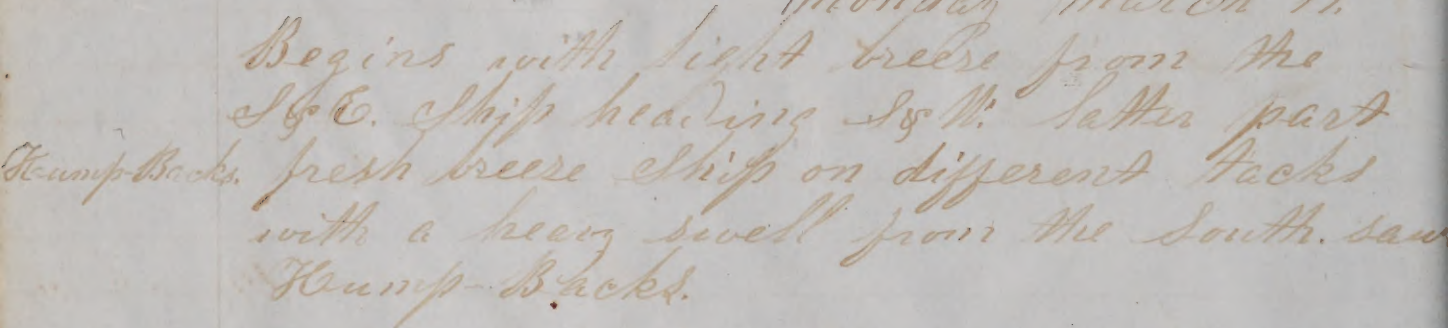 Monday March 11.
Begins with light breese from the
S & E. Ship heading S & W. latter part
Hump-Backs. fresh breeze Ship on different tacks
with a heavy swell from the South. saw
Hump-Backs.